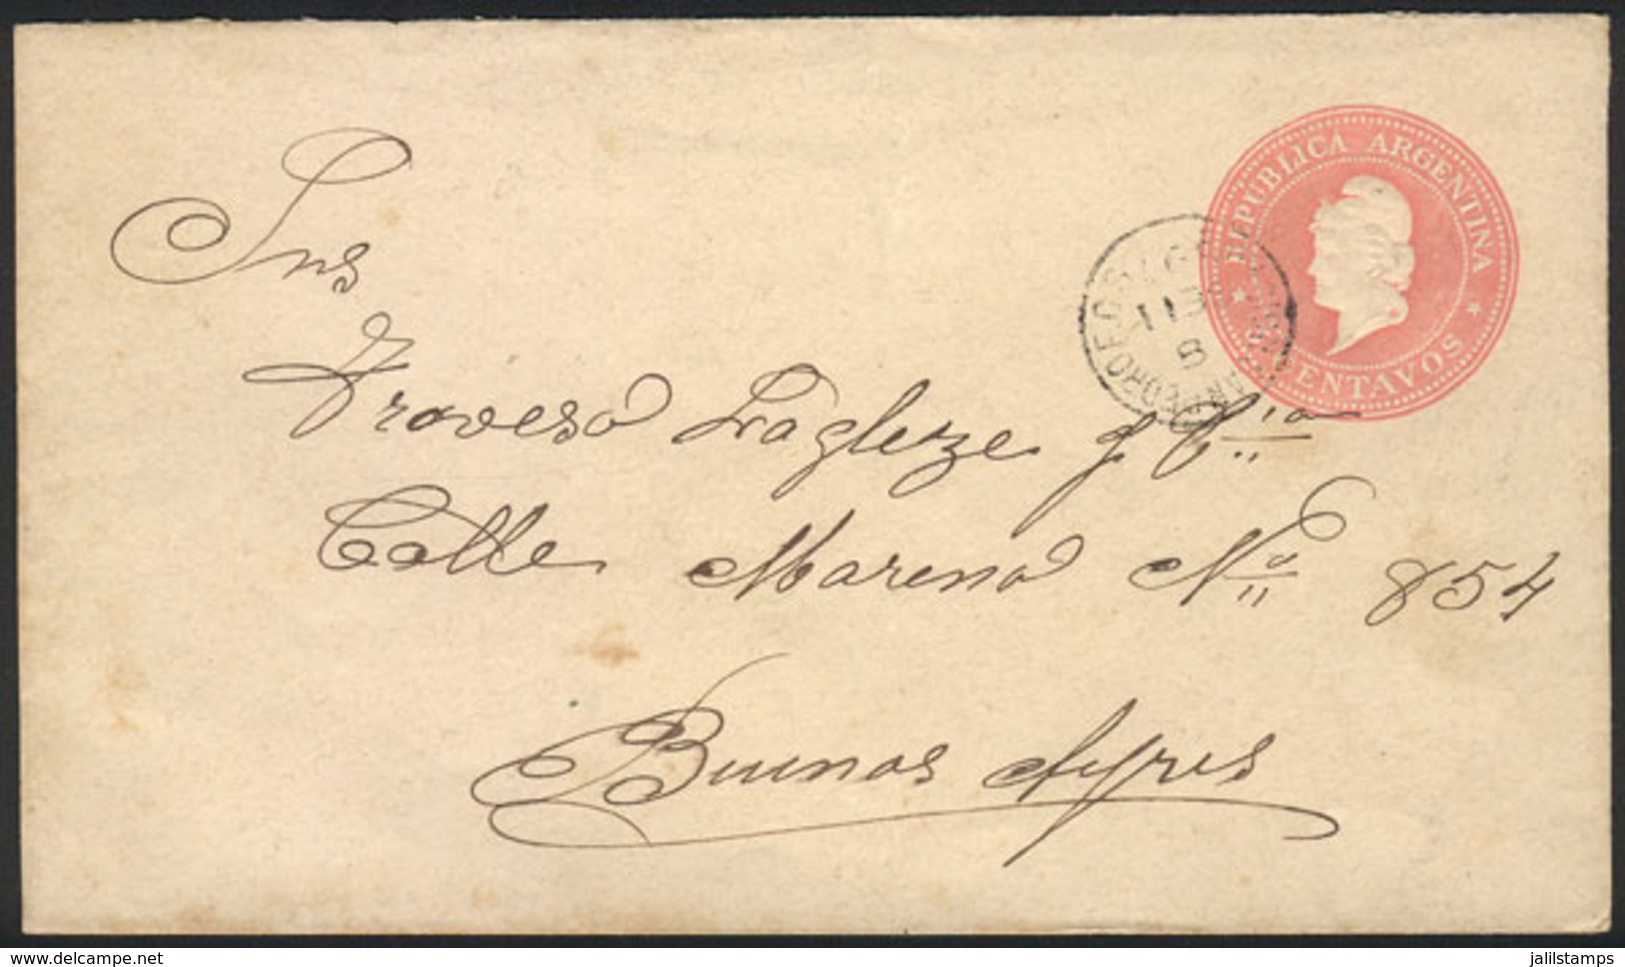 REPUBLICA ARGENTINA
CENTAVOS
Srs
Traveso Laglezze y Cia
Calle Moreno No 854
Buenos Ayres
delcampe.net
jalilstamps